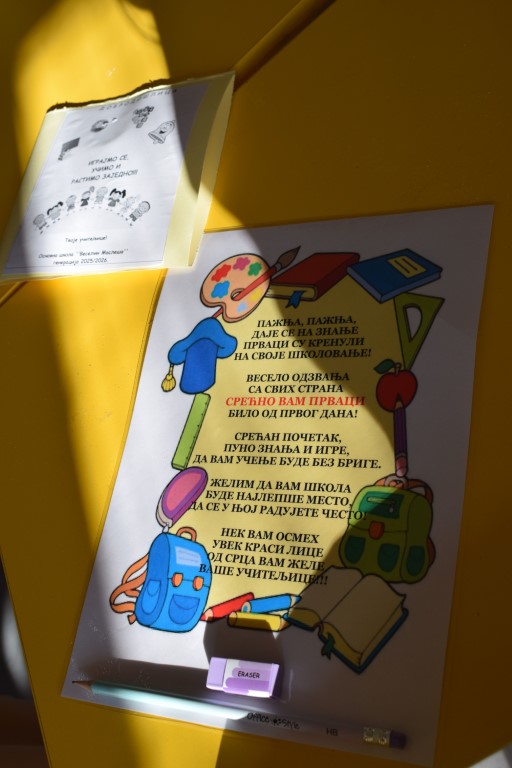 ДОБРОДОШЛИЦА
ИГРАЈМО СЕ
УЧИМО И
РАСТИМО ЗАЈЕДНО!!!
Твоје учитељице!
Основна школа "Веселин Маслеша"
генерација 2025/2026
ПАЖЊА, ПАЖЊА,
ДАЈЕ СЕ НА ЗНАЊЕ
ПРВАЦИ СУ КРЕНУЛИ
НА СВОЈЕ ШКОЛОВАЊЕ!
ВЕСЕЛО ОДЗВАЊА
СА СВИХ СТРАНА
СРЕЋНО ВАМ ПРВАЦИ
БИЛО ОД ПРВОГ ДАНА!
СРЕЋАН ПОЧЕТАК,
ПУНО ЗНАЊА И ИГРЕ,
ДА ВАМ УЧЕЊЕ БУДЕ БЕЗ БРИГЕ.
ЖЕЛИМ ДА ВАМ ШКОЛА
БУДЕ НАЈЛЕПШЕ МЕСТО,
ДА СЕ У ЊОЈ РАДУЈЕТЕ ЧЕСТО!
НЕК ВАМ ОСМЕХ
УВЕК КРАСИ ЛИЦЕ
ОД СРЦА ВАМ ЖЕЛЕ
ВАШЕ УЧИТЕЉИЦЕ!!!
ERASER
Office HB